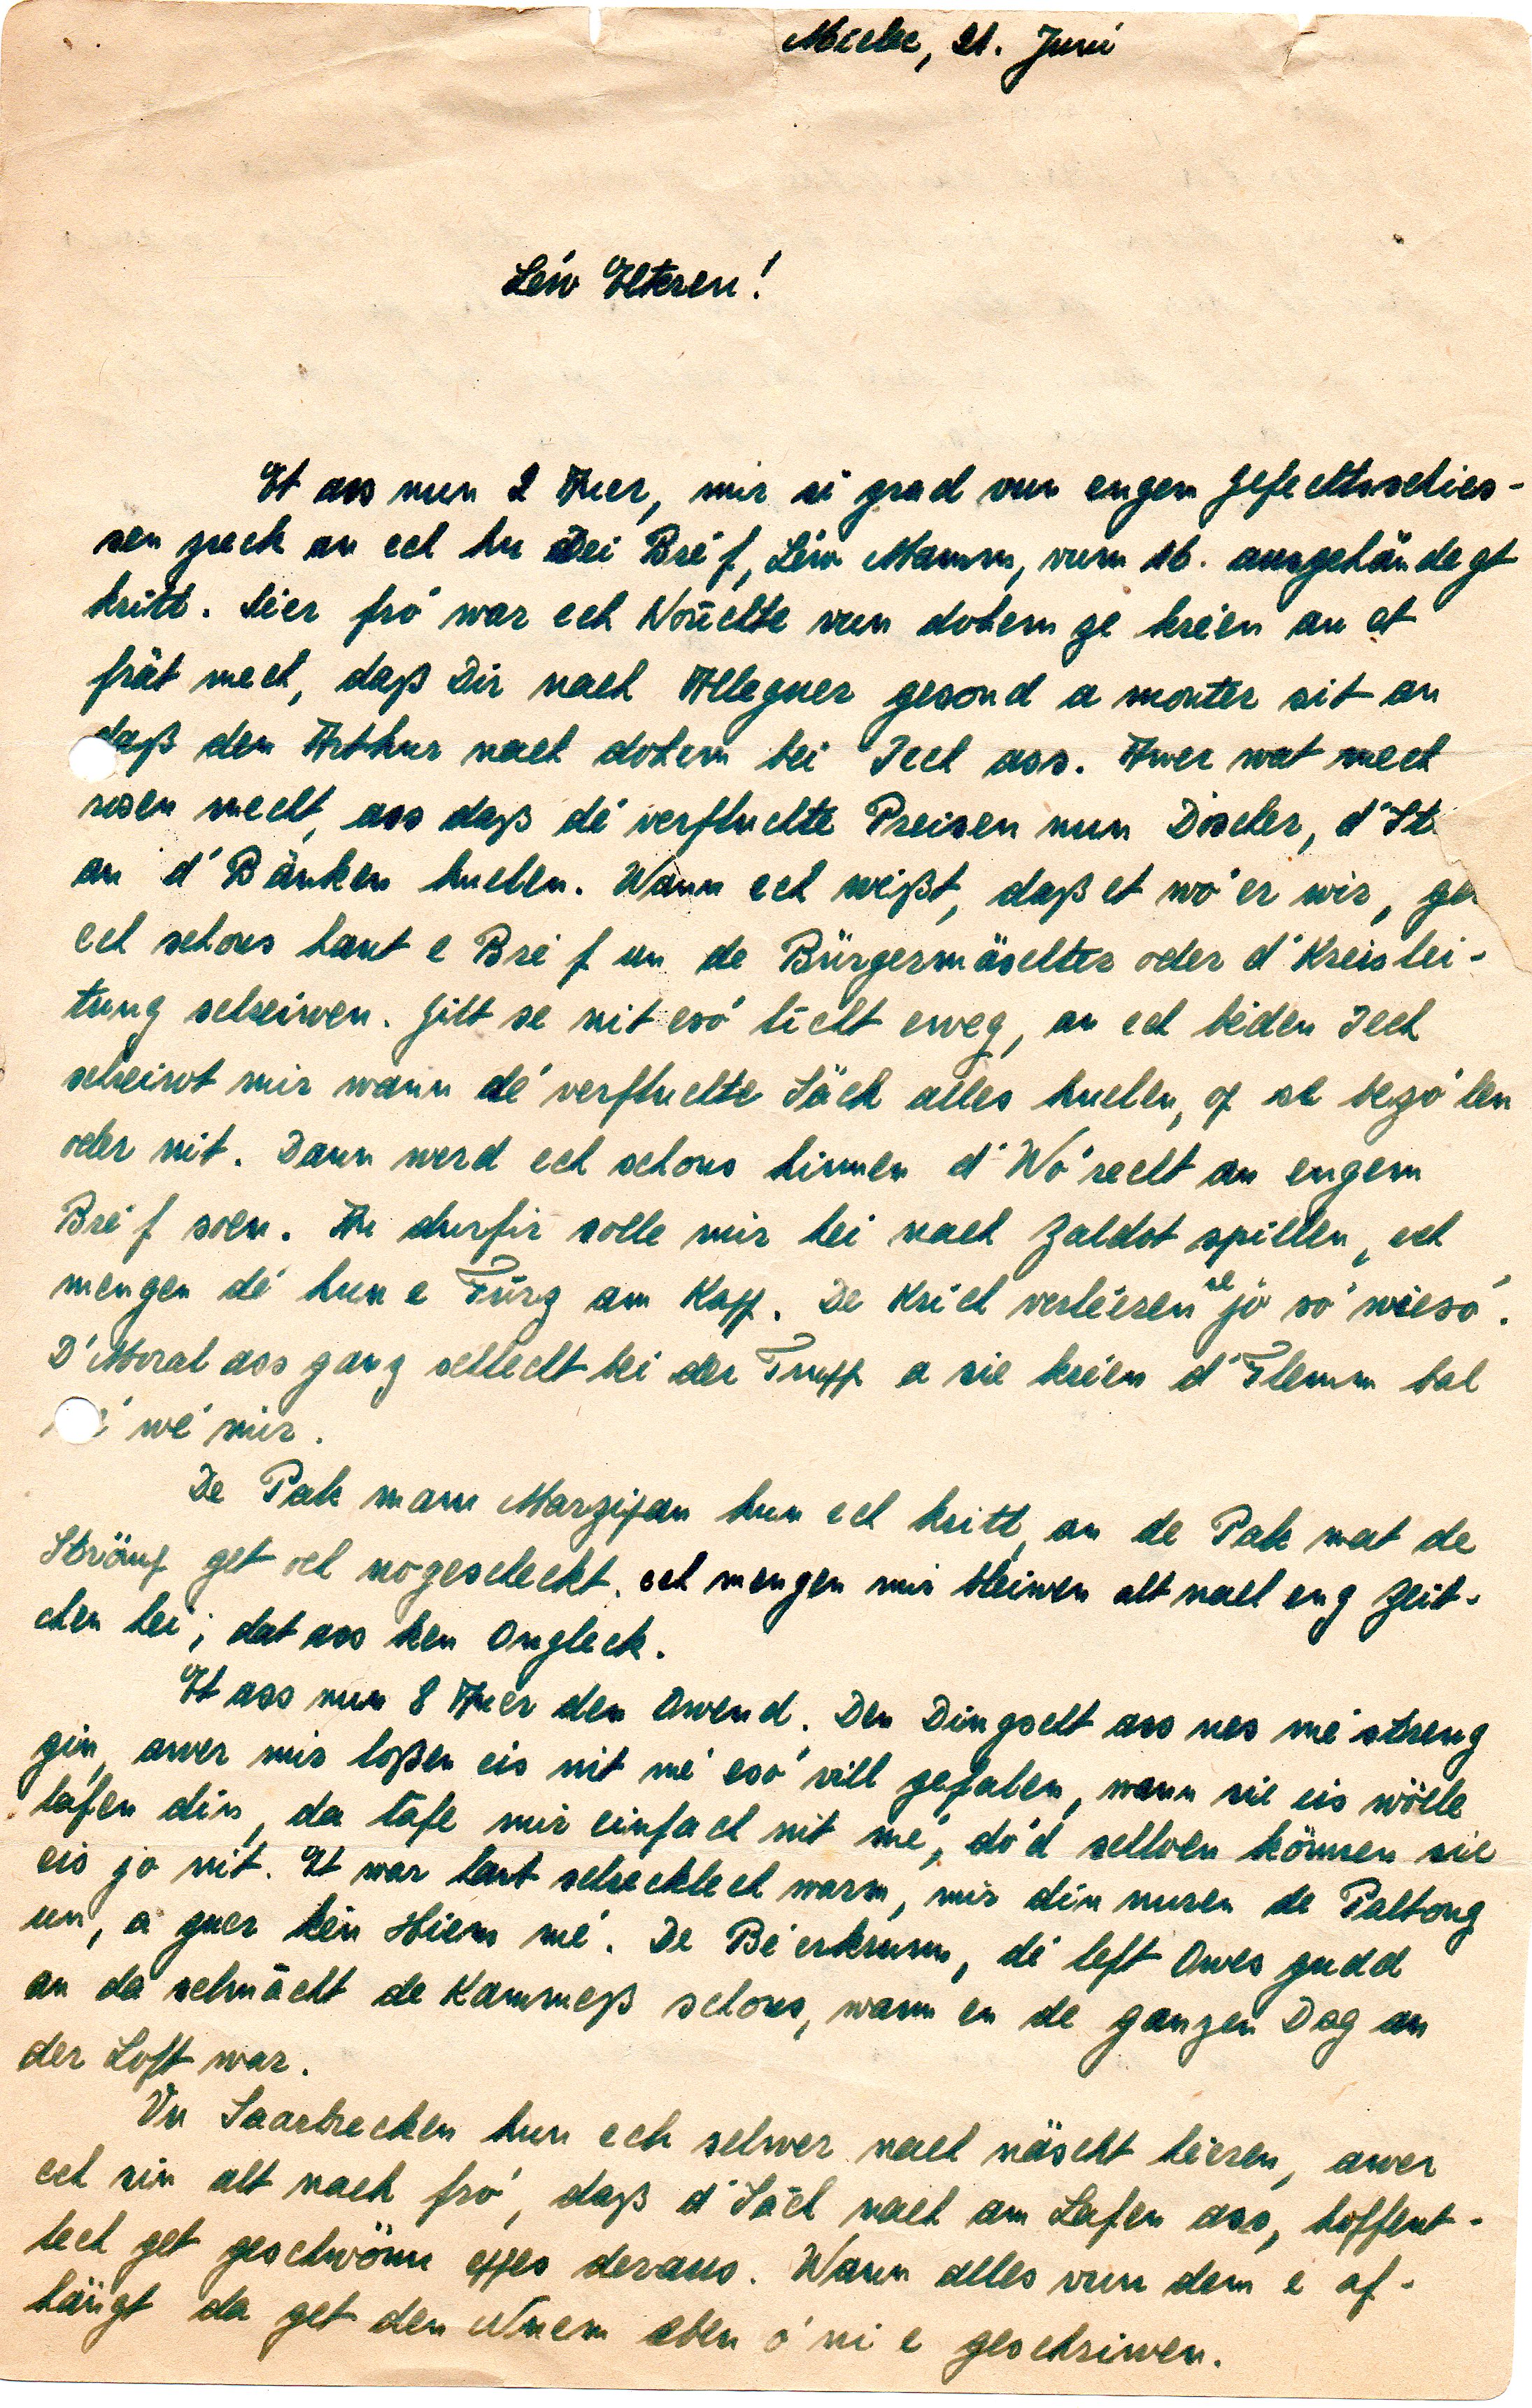 Mielec, 21. Juni
Léiw Elteren!
Et ass nun 2 Auer, mir si grad vun engem Gefechtsschies-
sen zreck an ech hu Dei Bréf, Léiw Mamm, vum 16. ausgehändegt
kritt. Sier fró war ech Noúchte vun dohem ze kréien an et
frät mech, daß Dir nach Alleguer gesond a monter sit an
daß den Arthur nach dohem bei Iech ass. Awer wat mech
rosen mecht, ass daß dé verfluchte Preisen nun Döscher, d'St
an d'Bänken huelen. Wann ech wéißt, daß et wó'er wir, ge
ech schons haut e Bréf un de Bürgermäschter oder d'Kreislei-
tung schreiwen. Gitt se nit esó liicht eweg, an ech bieden Iech
schreiwt mir wann dé verfluchte Säck alles huelen, of se bezó'len
oder nit. Dann werd ech schons hinnen d'Wó'recht an engem
Bréf soen. An durfir solle mir hei nach Zaldot spillen, ech
mengen dé hun e Fürz am Kapp. De Krich verléieren se jó só'wiesó.
D'Moral ass ganz schlecht bei der Trupp a sie kréien d'Flemm bal
wé mir.
De Pak mam Marzipan hun ech kritt, an de Pak mat de
Strömp get och nogescheckt. ech mengen mir bleiwen alt nach eng Zeit-
chen hei; dat ass ken Ongleck.
Et ass nun 8 Auer den Owend. Den Dingscht ass nes mé streng
gin, awer mir loßen eis nit mé esó vill gefalen, wann sie eis wölle
lafen din, da lafe mir einfach nit mé, dó'd schloen können sie
eis jo nit. Et war haut schrecklech warm, mir din nuren de Paltong
un, a guer kén Hiem mé. De Bé'erkrumm, dé left Owes gudd
an da schmächt de Kammeß schons, wann en de ganzen Dag an
der Loft war.
Vu Saarbrecken hun ech selwer nach näscht héieren, awer
ech sin alt nach fró, daß d'Säch nach am Lafen ass, hoffent-
lech get geschwönn eppes deraus. Wann alles vun dem e of-
hängt da get den Numm eben ó'ni e geschriwen.